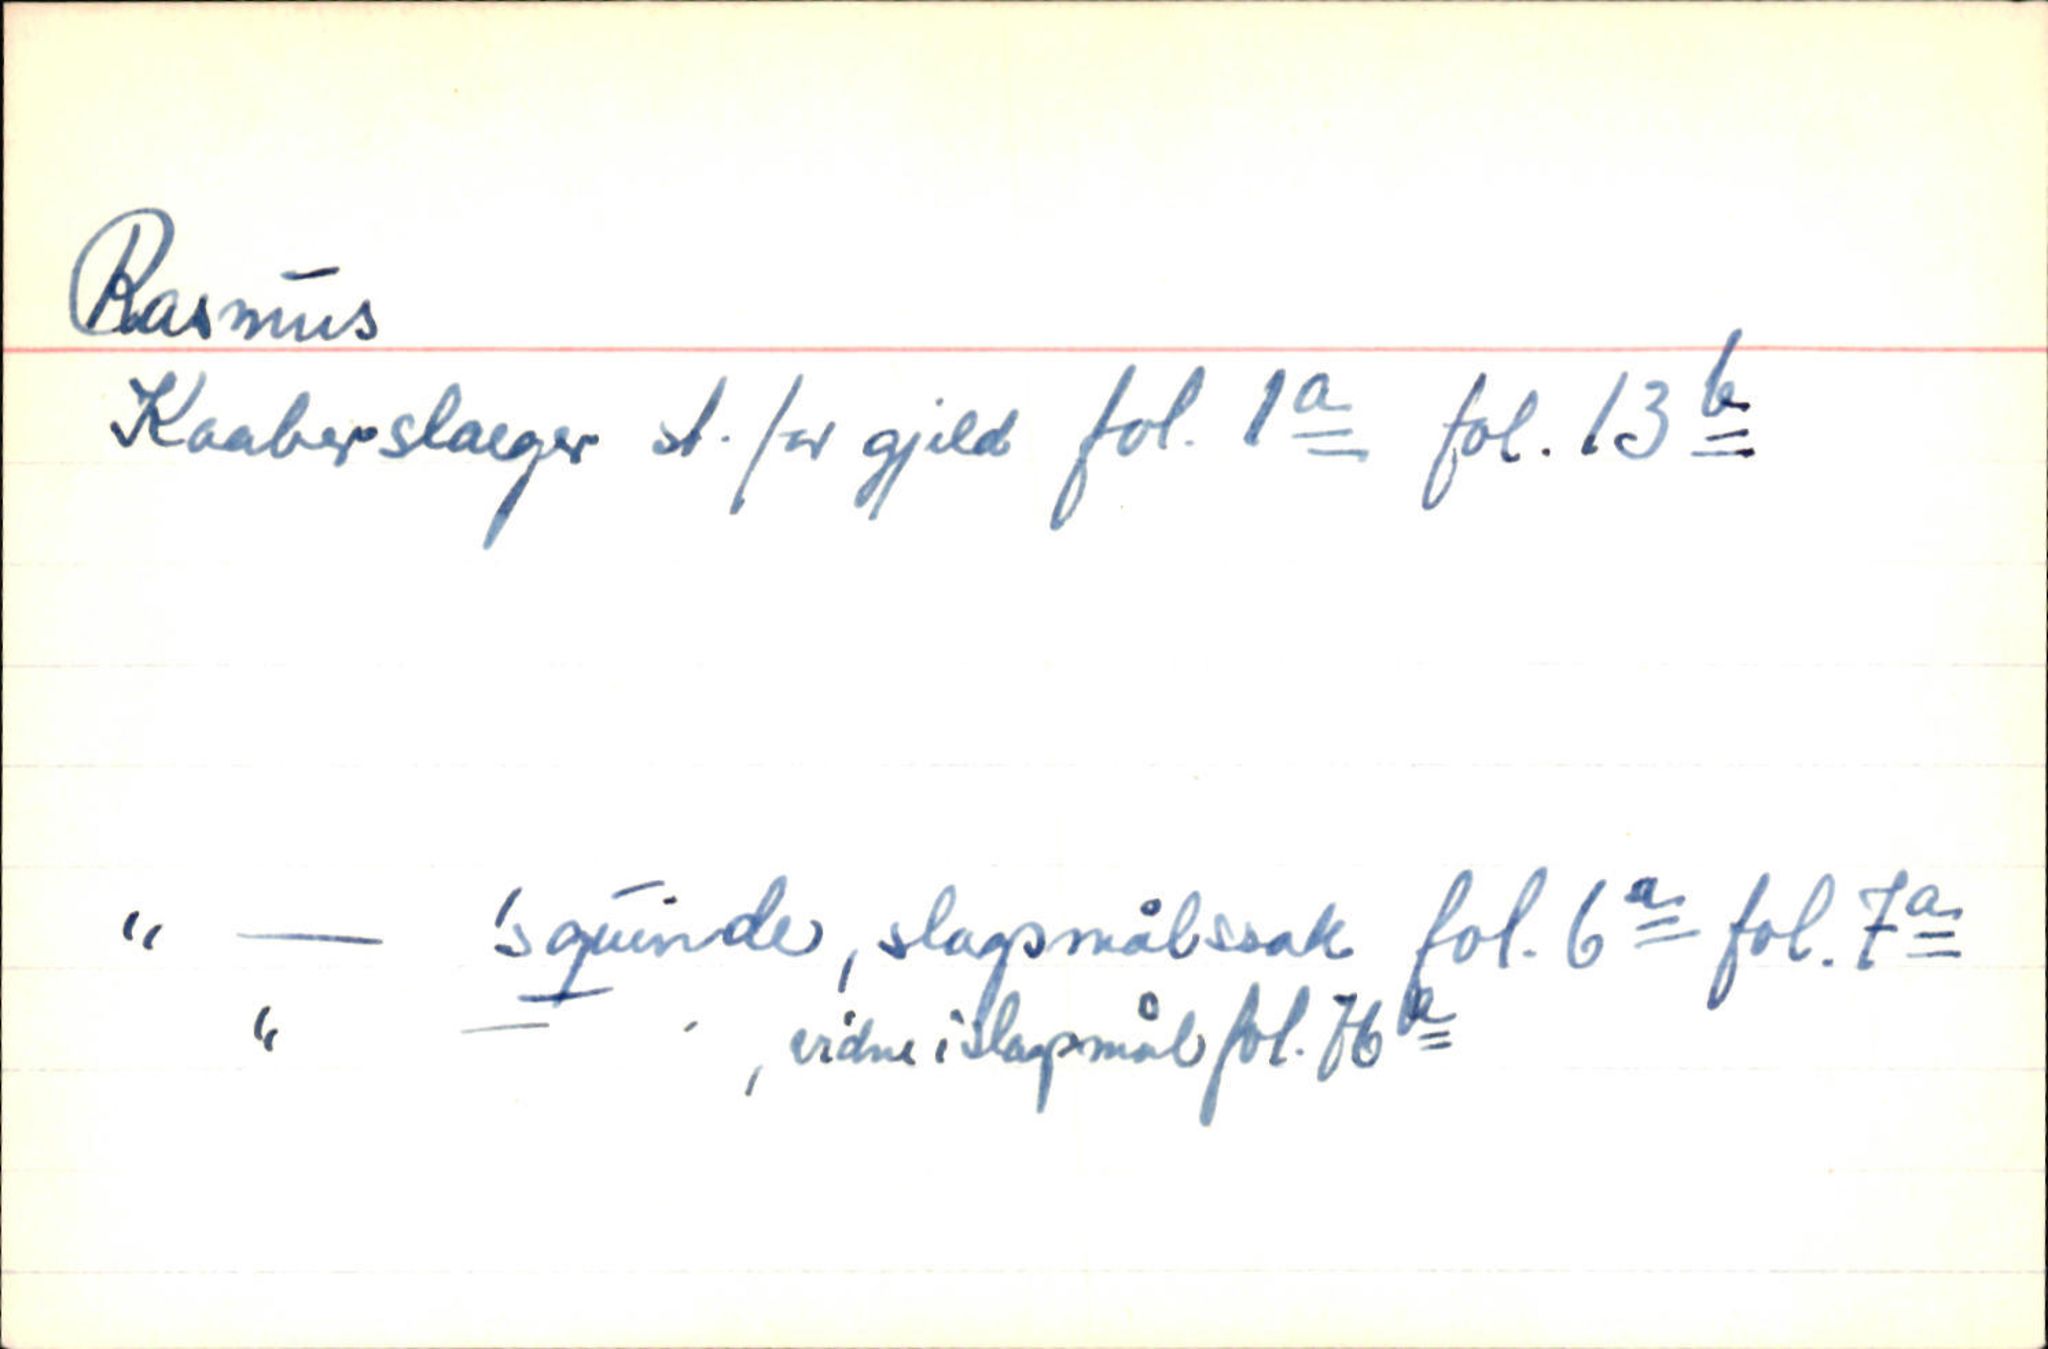 Rasmus
Kaaberslaeger st. for gjeld fol. 1a fol. 13b
" — 's quinde, slagsmålssak fol. 6a fol. 7a
" — ' , vidne i slagsmål fol. 76